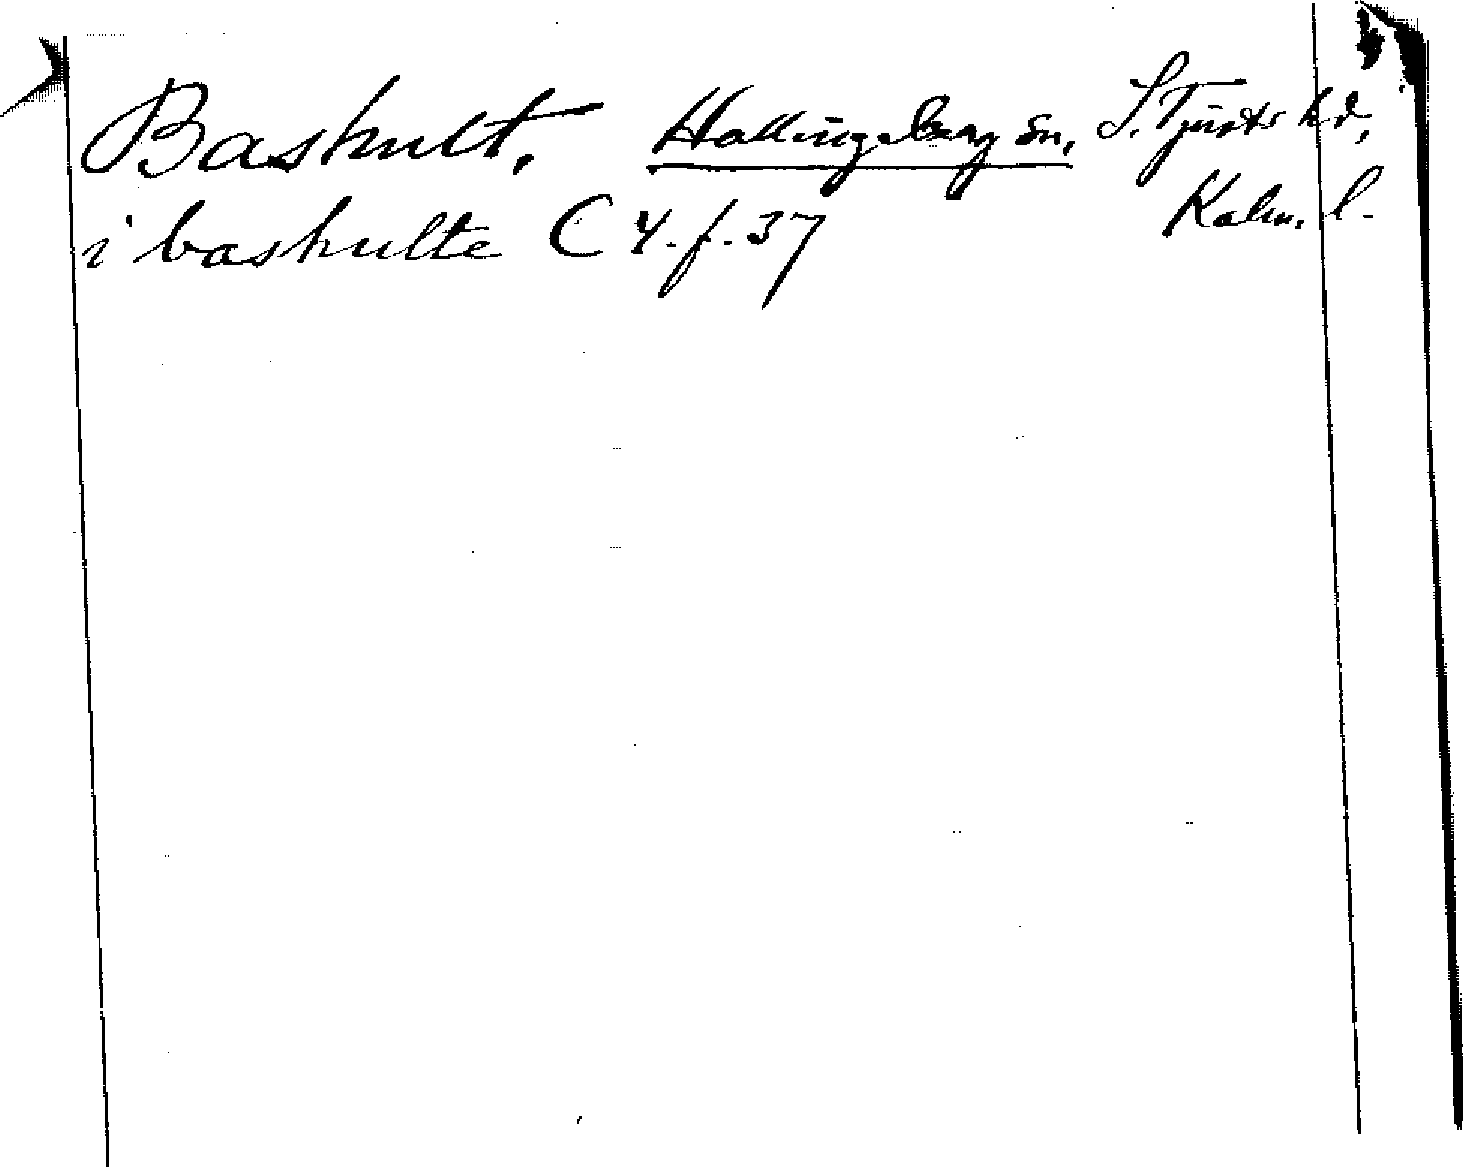 Bashult. Hallingeberg sn, S. Tjusts hd,
Kalm. l.
i bashulte C 4. f. 37